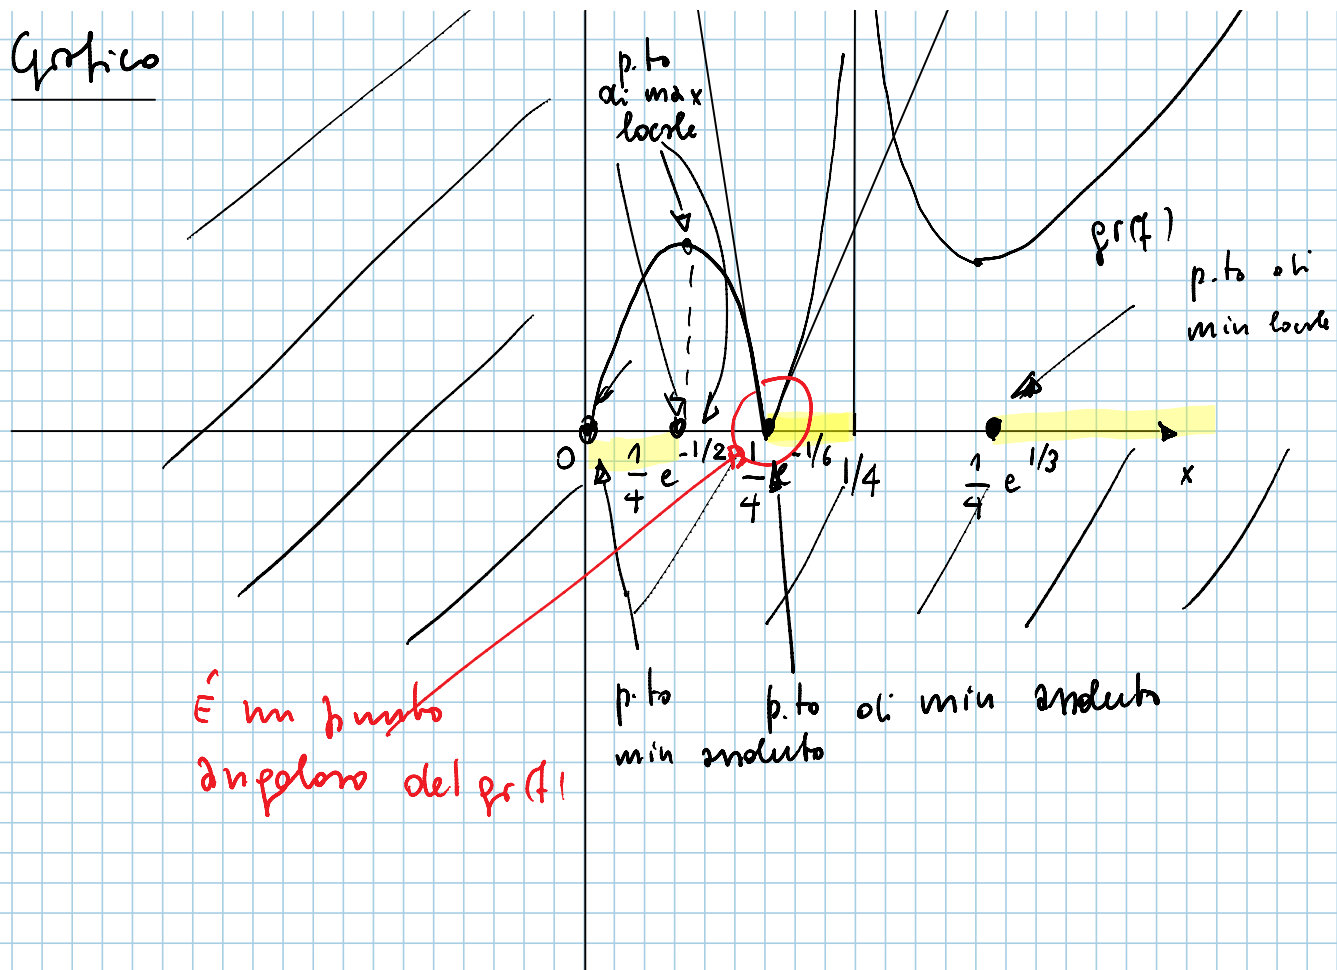 Grafico
p.to
di max
locale
gr(f)
p.to di
min locale
0 1/4 e^-1/2 1/4 e^-1/6 1/4 1/4 e^1/3 x
p.to
min assoluto
p.to di min assoluto
È un punto
angoloso del gr(f)